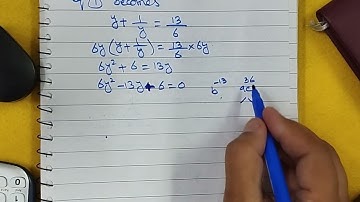 eq ① becomes
y + 1/y = 13/6
6y (y + 1/y) = 13/6 × 6y
6y² + 6 = 13y
6y² - 13y + 6 = 0 b -13 ac 36